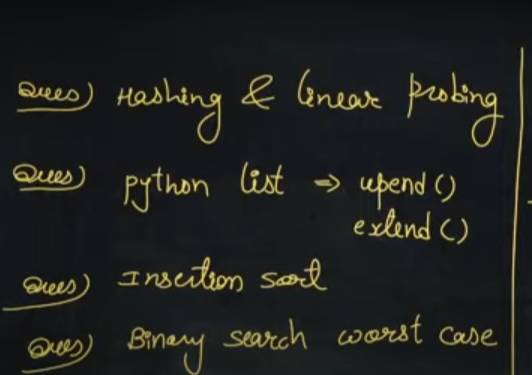 Ques) Hashing & linear probing
Ques) python list ⇒ upend()
extend()
Ques) Insertion sort
Ques) Binary search worst case